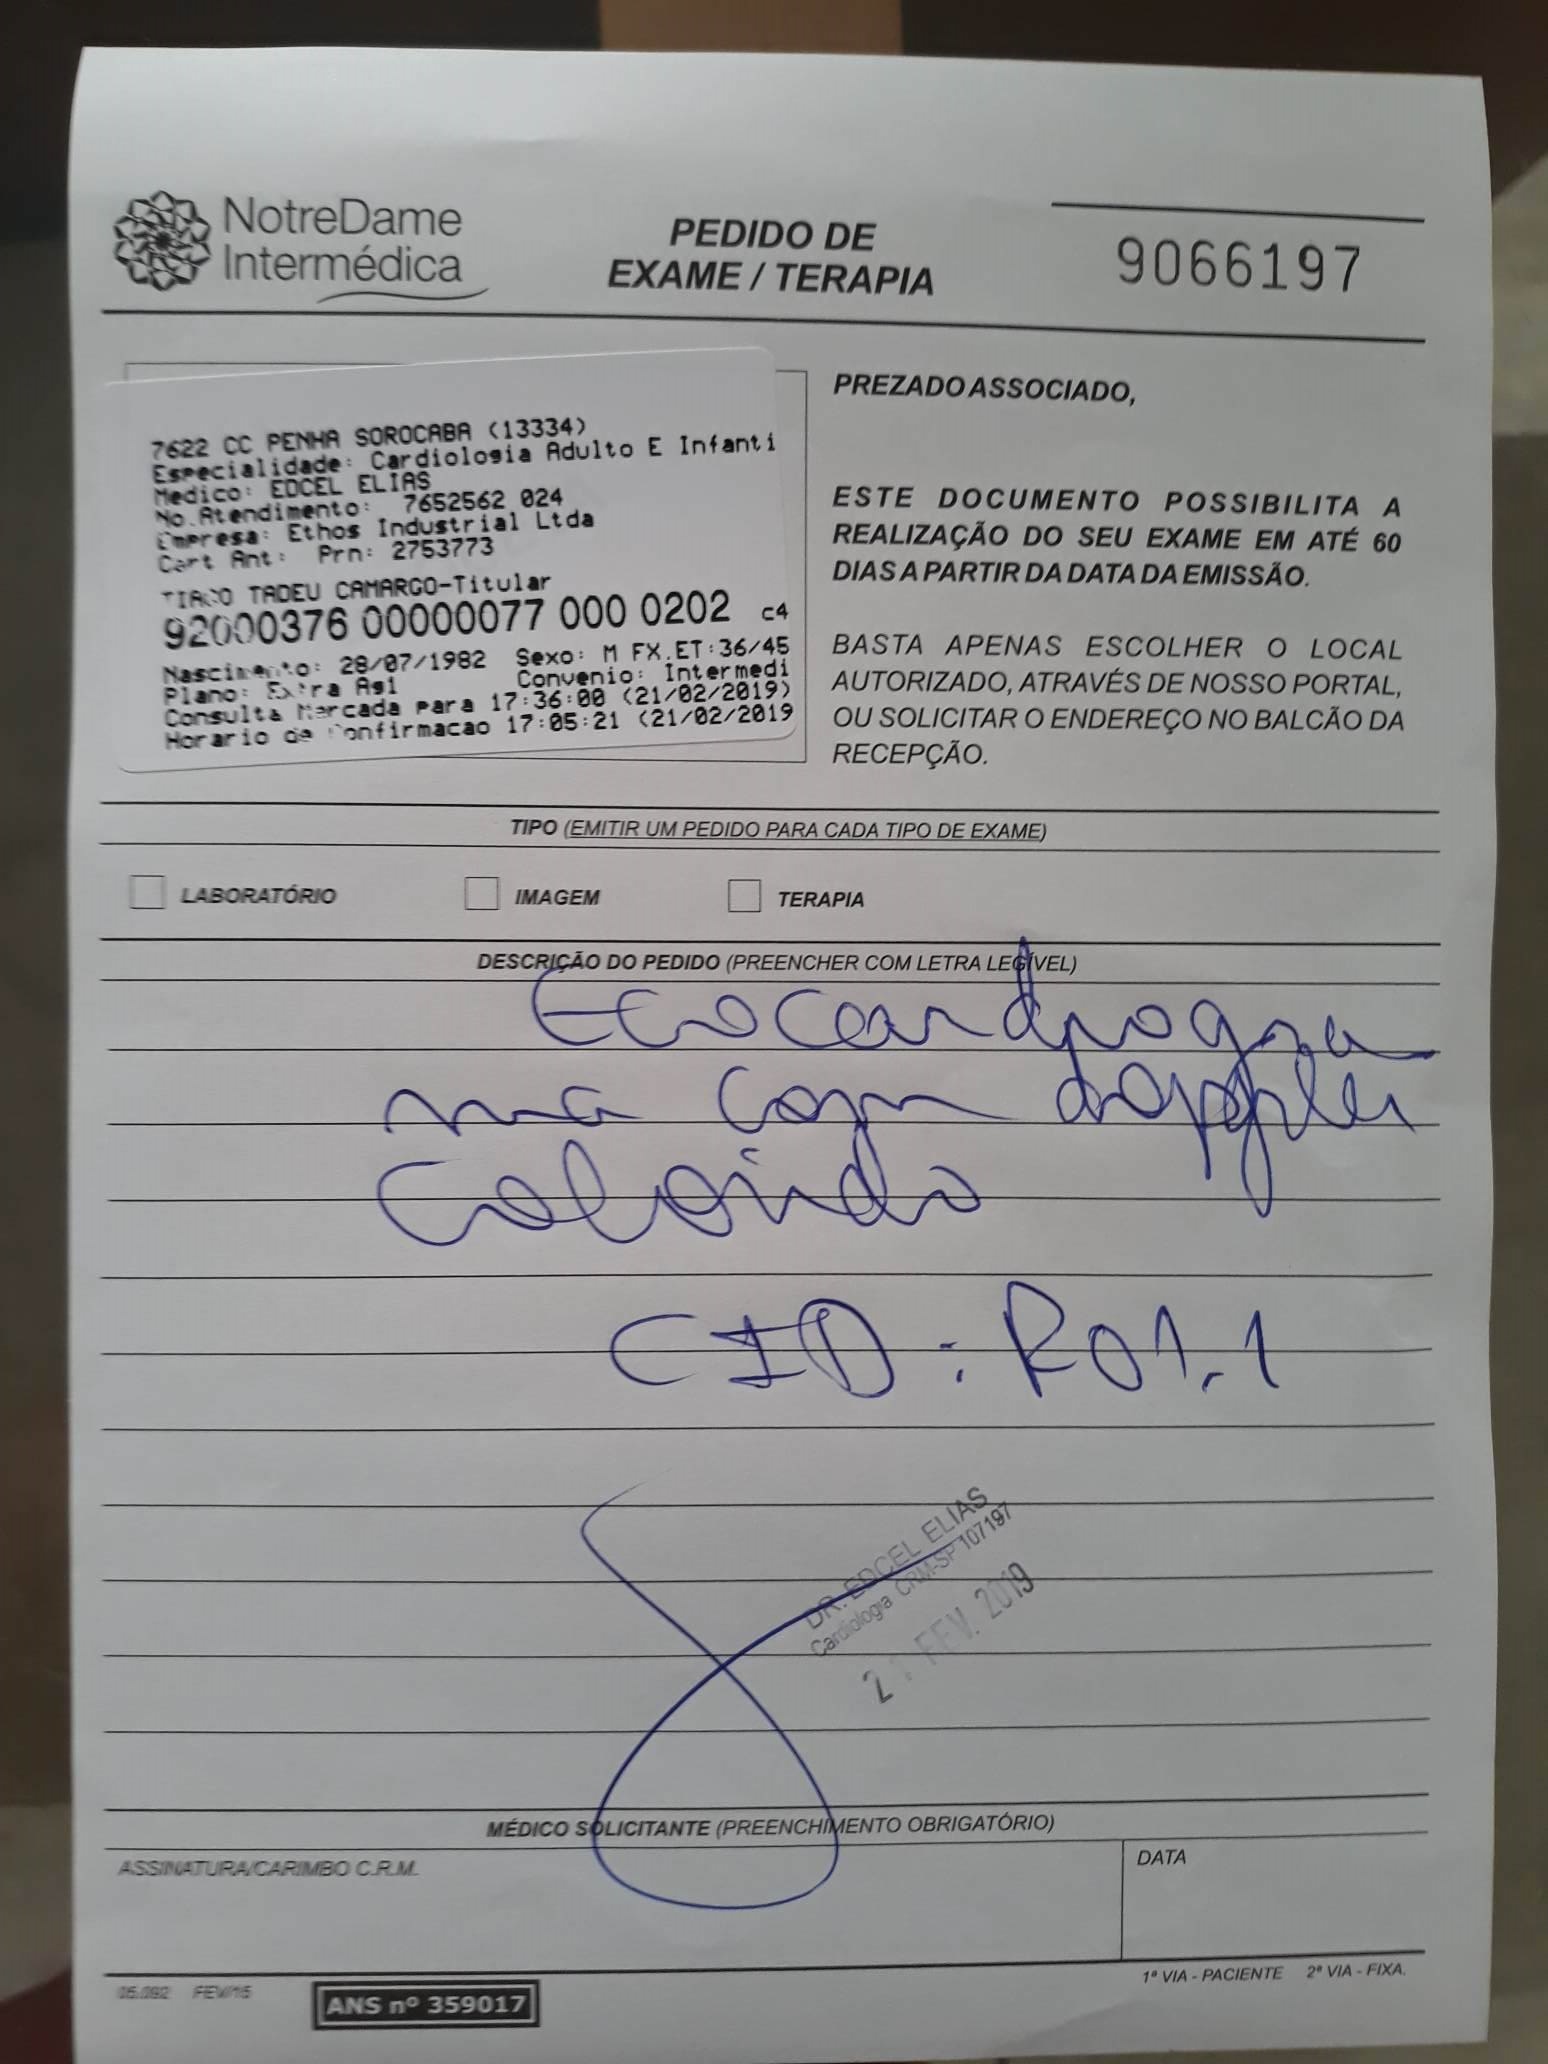 NotreDame
Intermédica
PEDIDO DE
EXAME / TERAPIA
9066197
7622 CC PENHA SOROCABA (13334)
Especialidade: Cardiologia Adulto E Infanti
Medico: EDCEL ELIAS
No.Atendimento: 7652562 024
Empresa: Ethos Industrial Ltda
Cart Ant: Prn: 2753773
TIAGO TADEU CAMARGO-Titular
92000376 00000077 000 0202 c4
Nascimento: 28/07/1982 Sexo: M FX.ET:36/45
Plano: Extra Ag1 Convenio: Intermedi
Consulta Marcada para 17:36:00 (21/02/2019)
Horario de Confirmacao 17:05:21 (21/02/2019
PREZADO ASSOCIADO,
ESTE DOCUMENTO POSSIBILITA A
REALIZAÇÃO DO SEU EXAME EM ATÉ 60
DIAS A PARTIR DA DATA DA EMISSÃO.
BASTA APENAS ESCOLHER O LOCAL
AUTORIZADO, ATRAVÉS DE NOSSO PORTAL,
OU SOLICITAR O ENDEREÇO NO BALCÃO DA
RECEPÇÃO.
TIPO (EMITIR UM PEDIDO PARA CADA TIPO DE EXAME)
LABORATÓRIO IMAGEM TERAPIA
DESCRIÇÃO DO PEDIDO (PREENCHER COM LETRA LEGÍVEL)
Ecocardiogra
ma com doppler
colorido
CID: R01.1
DR. EDCEL ELIAS
Cardiologia CRM-SP 107197
21 FEV. 2019
MÉDICO SOLICITANTE (PREENCHIMENTO OBRIGATÓRIO)
ASSINATURA/CARIMBO C.R.M.
DATA
1ª VIA - PACIENTE 2ª VIA - FIXA.
05.092 FEV/15
ANS nº 359017